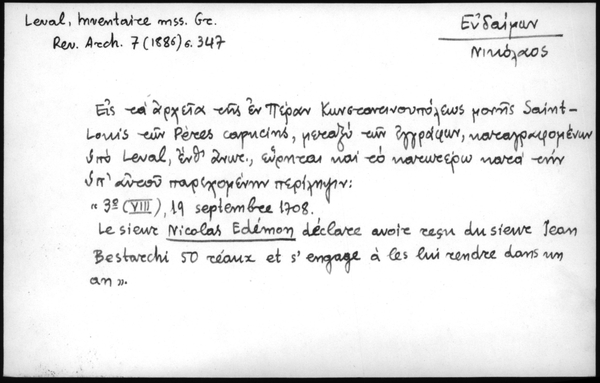 Leval, Inventaire mss. Gr.
Rev. Arch. 7 (1886) σ. 347
Εὐδαίμων
Νικόλαος
Εἰς τὰ ἀρχεῖα τῆς ἐν Πέραν Κωνσταντινουπόλεως μονῆς Saint-
Louis τῶν Pères capucins, μεταξὺ τῶν ἐγγράφων, καταγραφομένων
ὑπὸ Leval, ἔνθ' ἄνωτ., εὕρηται καὶ τὸ κατωτέρω κατὰ τὴν
ὑπ' αὐτοῦ παρεχομένην περίληψιν:
« 3º (VIII), 19 septembre 1708.
Le sieur Nicolas Edémon déclare avoir reçu du sieur Jean
Bestarchi 50 réaux et s'engage à les lui rendre dans un
an ».